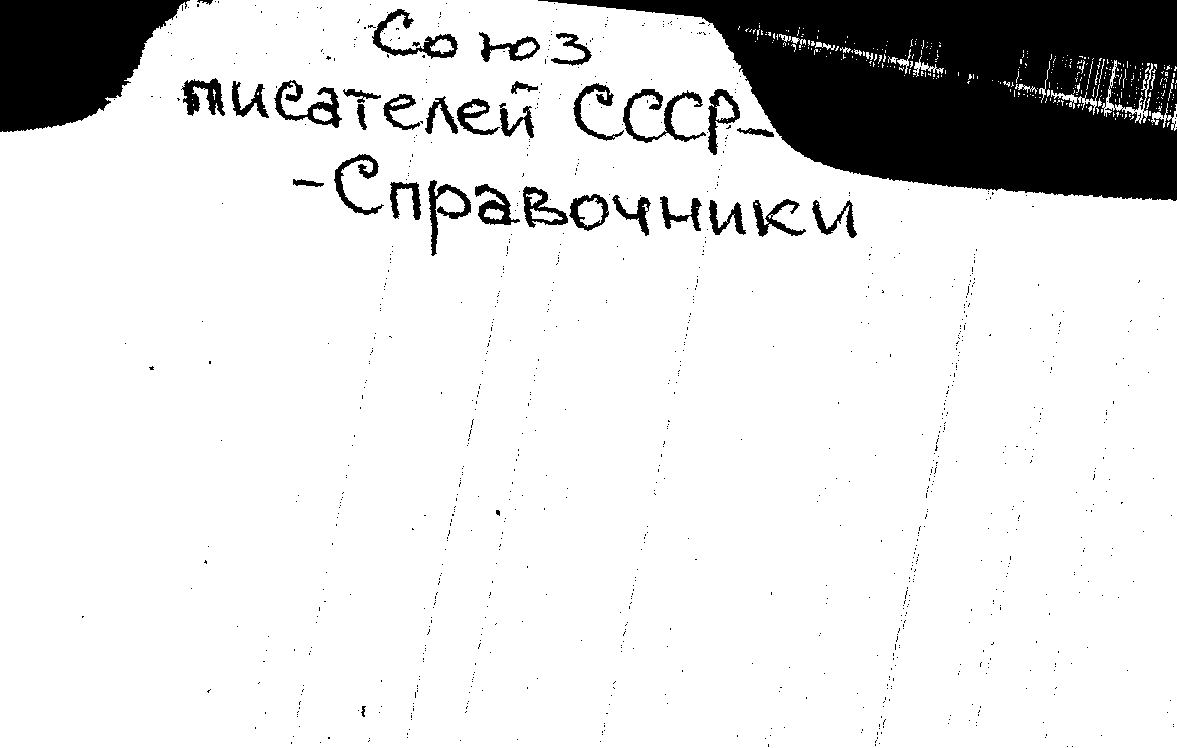 Союз
писателей СССР-
-Справочники